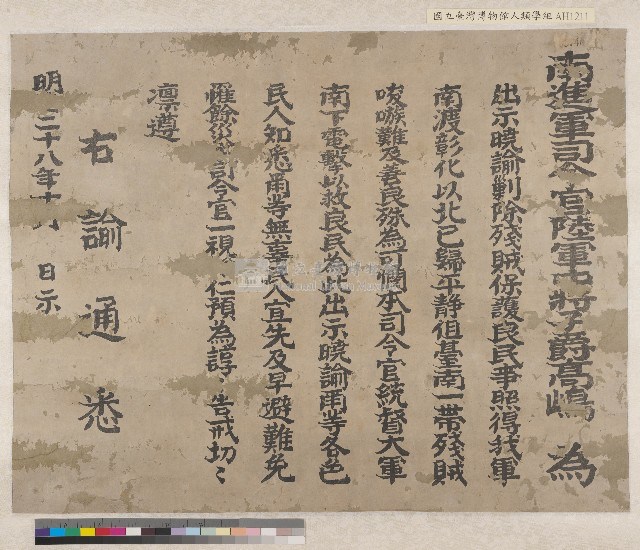 國立臺灣博物館人類學組 AH1211
南進軍司令官陸軍中將子爵高嶋 為
出示曉諭剿除殘賊保護良民事照得我軍
南渡彰化以北已歸平静但臺南一帶殘賊
唆嗾難及善良殊為可憫本司令官統督大軍
南下電擊以救良民為此出示曉諭爾等各色
民人知悉爾等無辜民人宜先及早避難免
罹餘災 司令官一視 仁預為諄〻告戒切〻
凛遵
右諭通悉
明 二十八年十月 日示